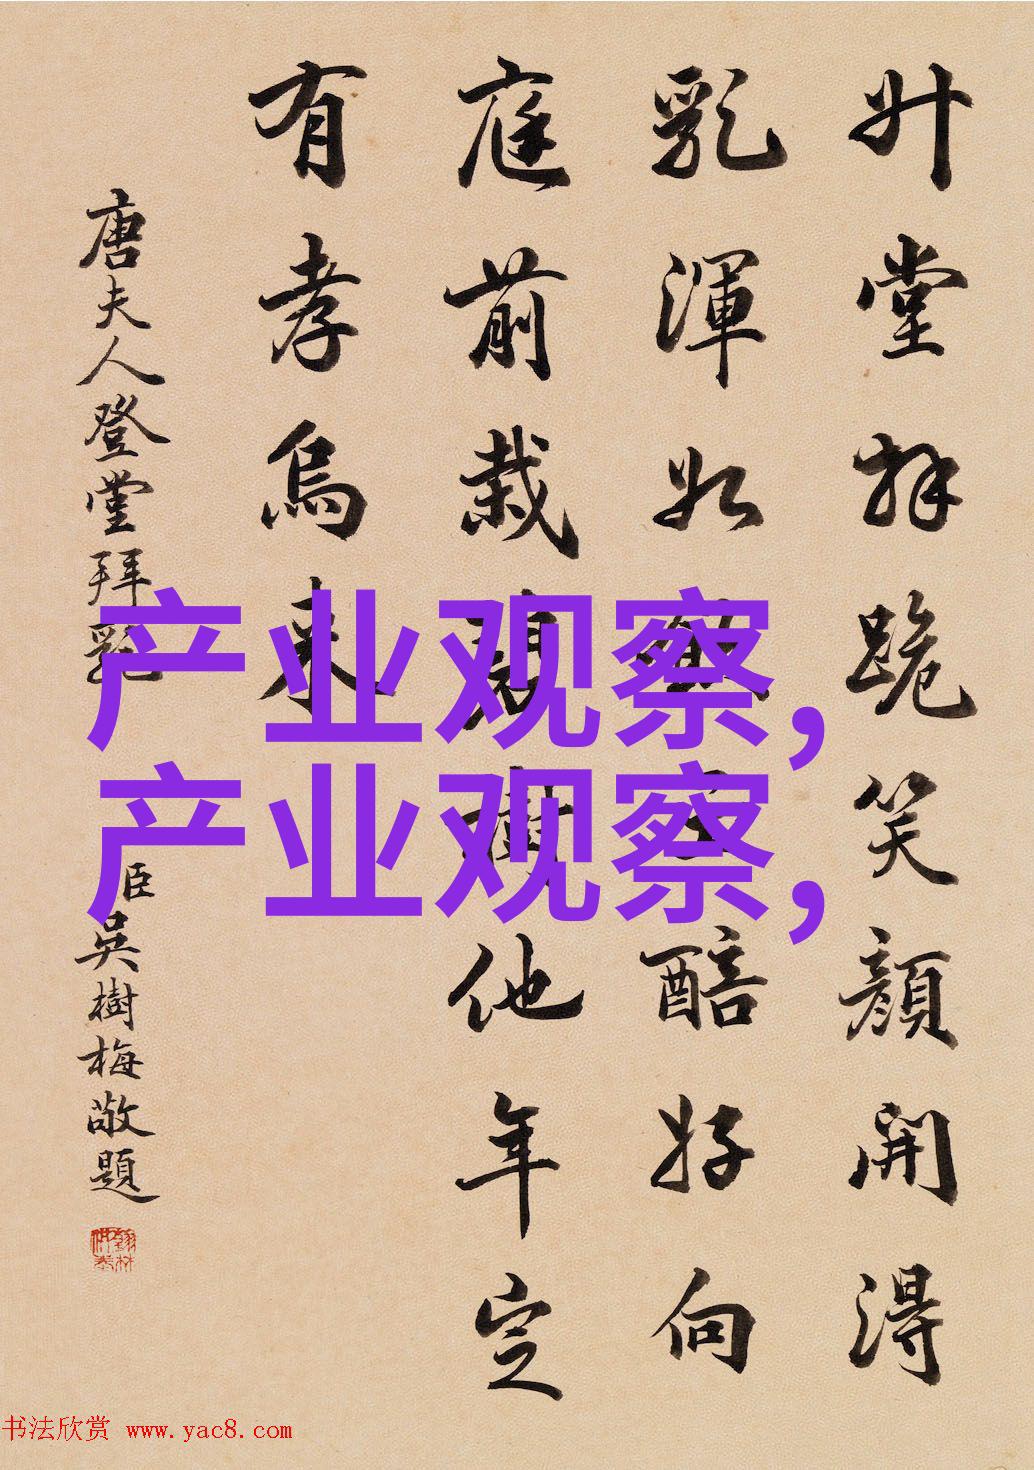 升堂拜跪笑顏開得
乳渾如醅好向
庭前栽樹他年定
有孝烏來
唐夫人登堂拜乳
臣吳樹梅敬題
产业观察,
产业观察,
书法欣赏 www.yac8.com